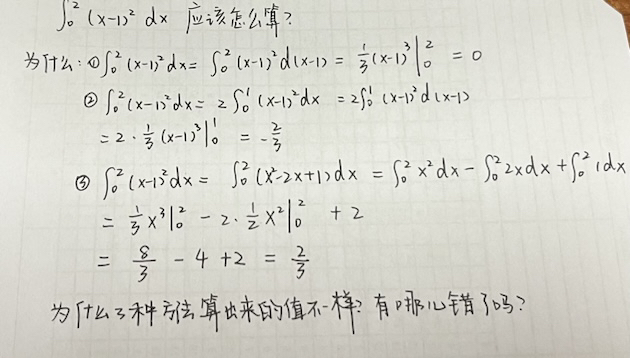 ∫₀² (x-1)² dx 应该怎么算?
为什么: ① ∫₀² (x-1)² dx = ∫₀² (x-1)² d(x-1) = 1/3 (x-1)³ |₀² = 0
② ∫₀² (x-1)² dx = 2 ∫₀¹ (x-1)² dx = 2 ∫₀¹ (x-1)² d(x-1)
= 2 · 1/3 (x-1)³ |₀¹ = - 2/3
③ ∫₀² (x-1)² dx = ∫₀² (x²-2x+1) dx = ∫₀² x² dx - ∫₀² 2x dx + ∫₀² 1 dx
= 1/3 x³ |₀² - 2 · 1/2 x² |₀² + 2
= 8/3 - 4 + 2 = 2/3
为什么3种方法算出来的值不一样? 有哪儿错了吗?